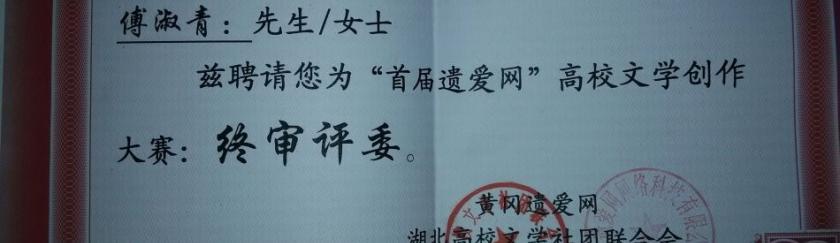 傅淑青：先生/女士
兹聘请您为“首届遗爱网”高校文学创作
大赛：终审评委。
黄冈遗爱网
湖北高校文学社团联合会